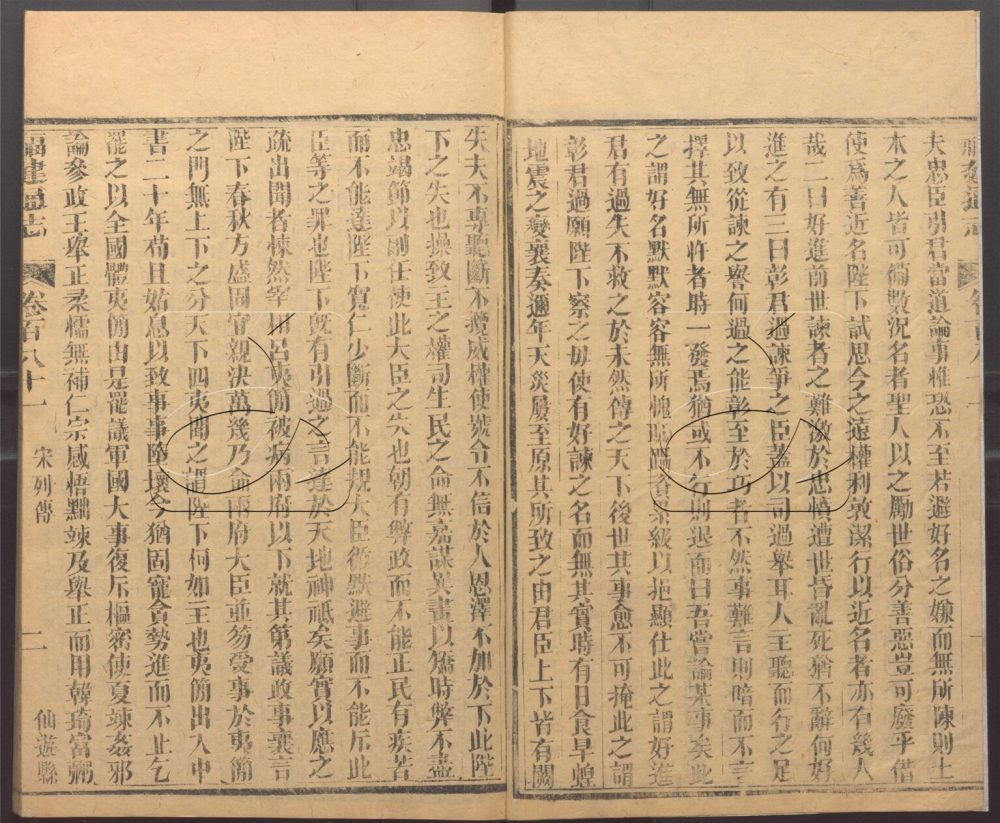 夫忠臣引君當道論事惟恐不至若避好名之嫌而無所陳則土
木之人皆可徧數況名者聖人以之勵世俗分善惡豈可廢乎借
使爲善近名陛下試思今之遠權利敦潔行以近名者亦有幾人
哉二曰好進前世諫者之難激於忠憤遭世昏亂死猶不辭何好
進之有三曰彰君過諫爭之臣蓋以司過舉耳人主聽而行之足
以致從諫之譽何過之能彰至於巧者不然事難言則喑而不言
擇其無所忤者時一發焉猶或不行則退而曰吾嘗論某事矣此
之謂好名默默容容無所愧恥躡資累級以挹顯仕此之謂好進
君有過失不救之於未然傳之天下後世其事愈不可掩此之謂
彰君過願陛下察之毋使有好諫之名而無其實時有日食旱蝗
地震之變襄奏邇年天災屢至原其所致之由君臣上下皆有闕
失夫不專聽斷不攬威權使號令不信於人恩澤不加於下此陛
下之失也操致主之權司生民之命無嘉謀異畫以矯時弊不盡
忠竭節以副任使此大臣之失也朝有弊政而不能正民有疾苦
而不能達陛下寬仁少斷而不能規大臣循默避事而不能斥此
臣等之罪也陛下既有引過之言達於天地神祗矣願實以應之
疏出聞者悚然宰相呂夷簡被病兩府以下就其第議政事襄言
陛下春秋方盛固宜親決萬幾乃命兩府大臣並笏受事於夷簡
之門無上下之分天下四夷聞之謂陛下何如主也夷簡出入中
書二十年苟且姑息以致事事隳壞今猶固寵貪勢進而不止乞
罷之以全國體夷簡由是罷議軍國大事復斥樞密使夏竦姦邪
論參政王舉正柔懦無補仁宗感悟黜竦及舉正而用韓琦富弼
福建通志
卷百八十一
宋列傳
二
仙遊縣